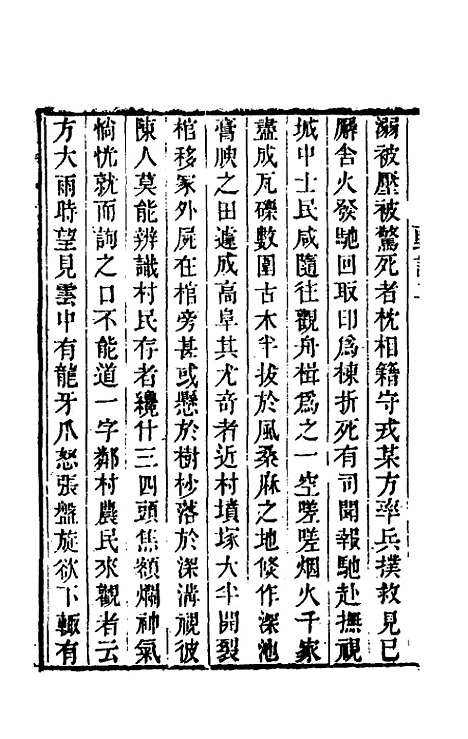 溺被壓被驚死者枕相籍守戎某方率兵撲救見已
廨舍火發馳回取印爲棟折死有司聞報馳赴撫視
城中士民咸隨往觀舟楫爲之一空嗟嗟烟火千家
盡成瓦礫數圍古木半拔於風桑麻之地倐作深池
膏腴之田遽成高阜其尤奇者近村墳塚大半開裂
棺移冢外屍在棺旁甚或懸於樹杪落於深溝視彼
陳人莫能辨識村民存者纔什三四頭焦額爛神氣
惝恍就而詢之口不能道一字鄰村農民來觀者云
方大雨時望見雲中有龍牙爪怒張盤旋欲下輙有